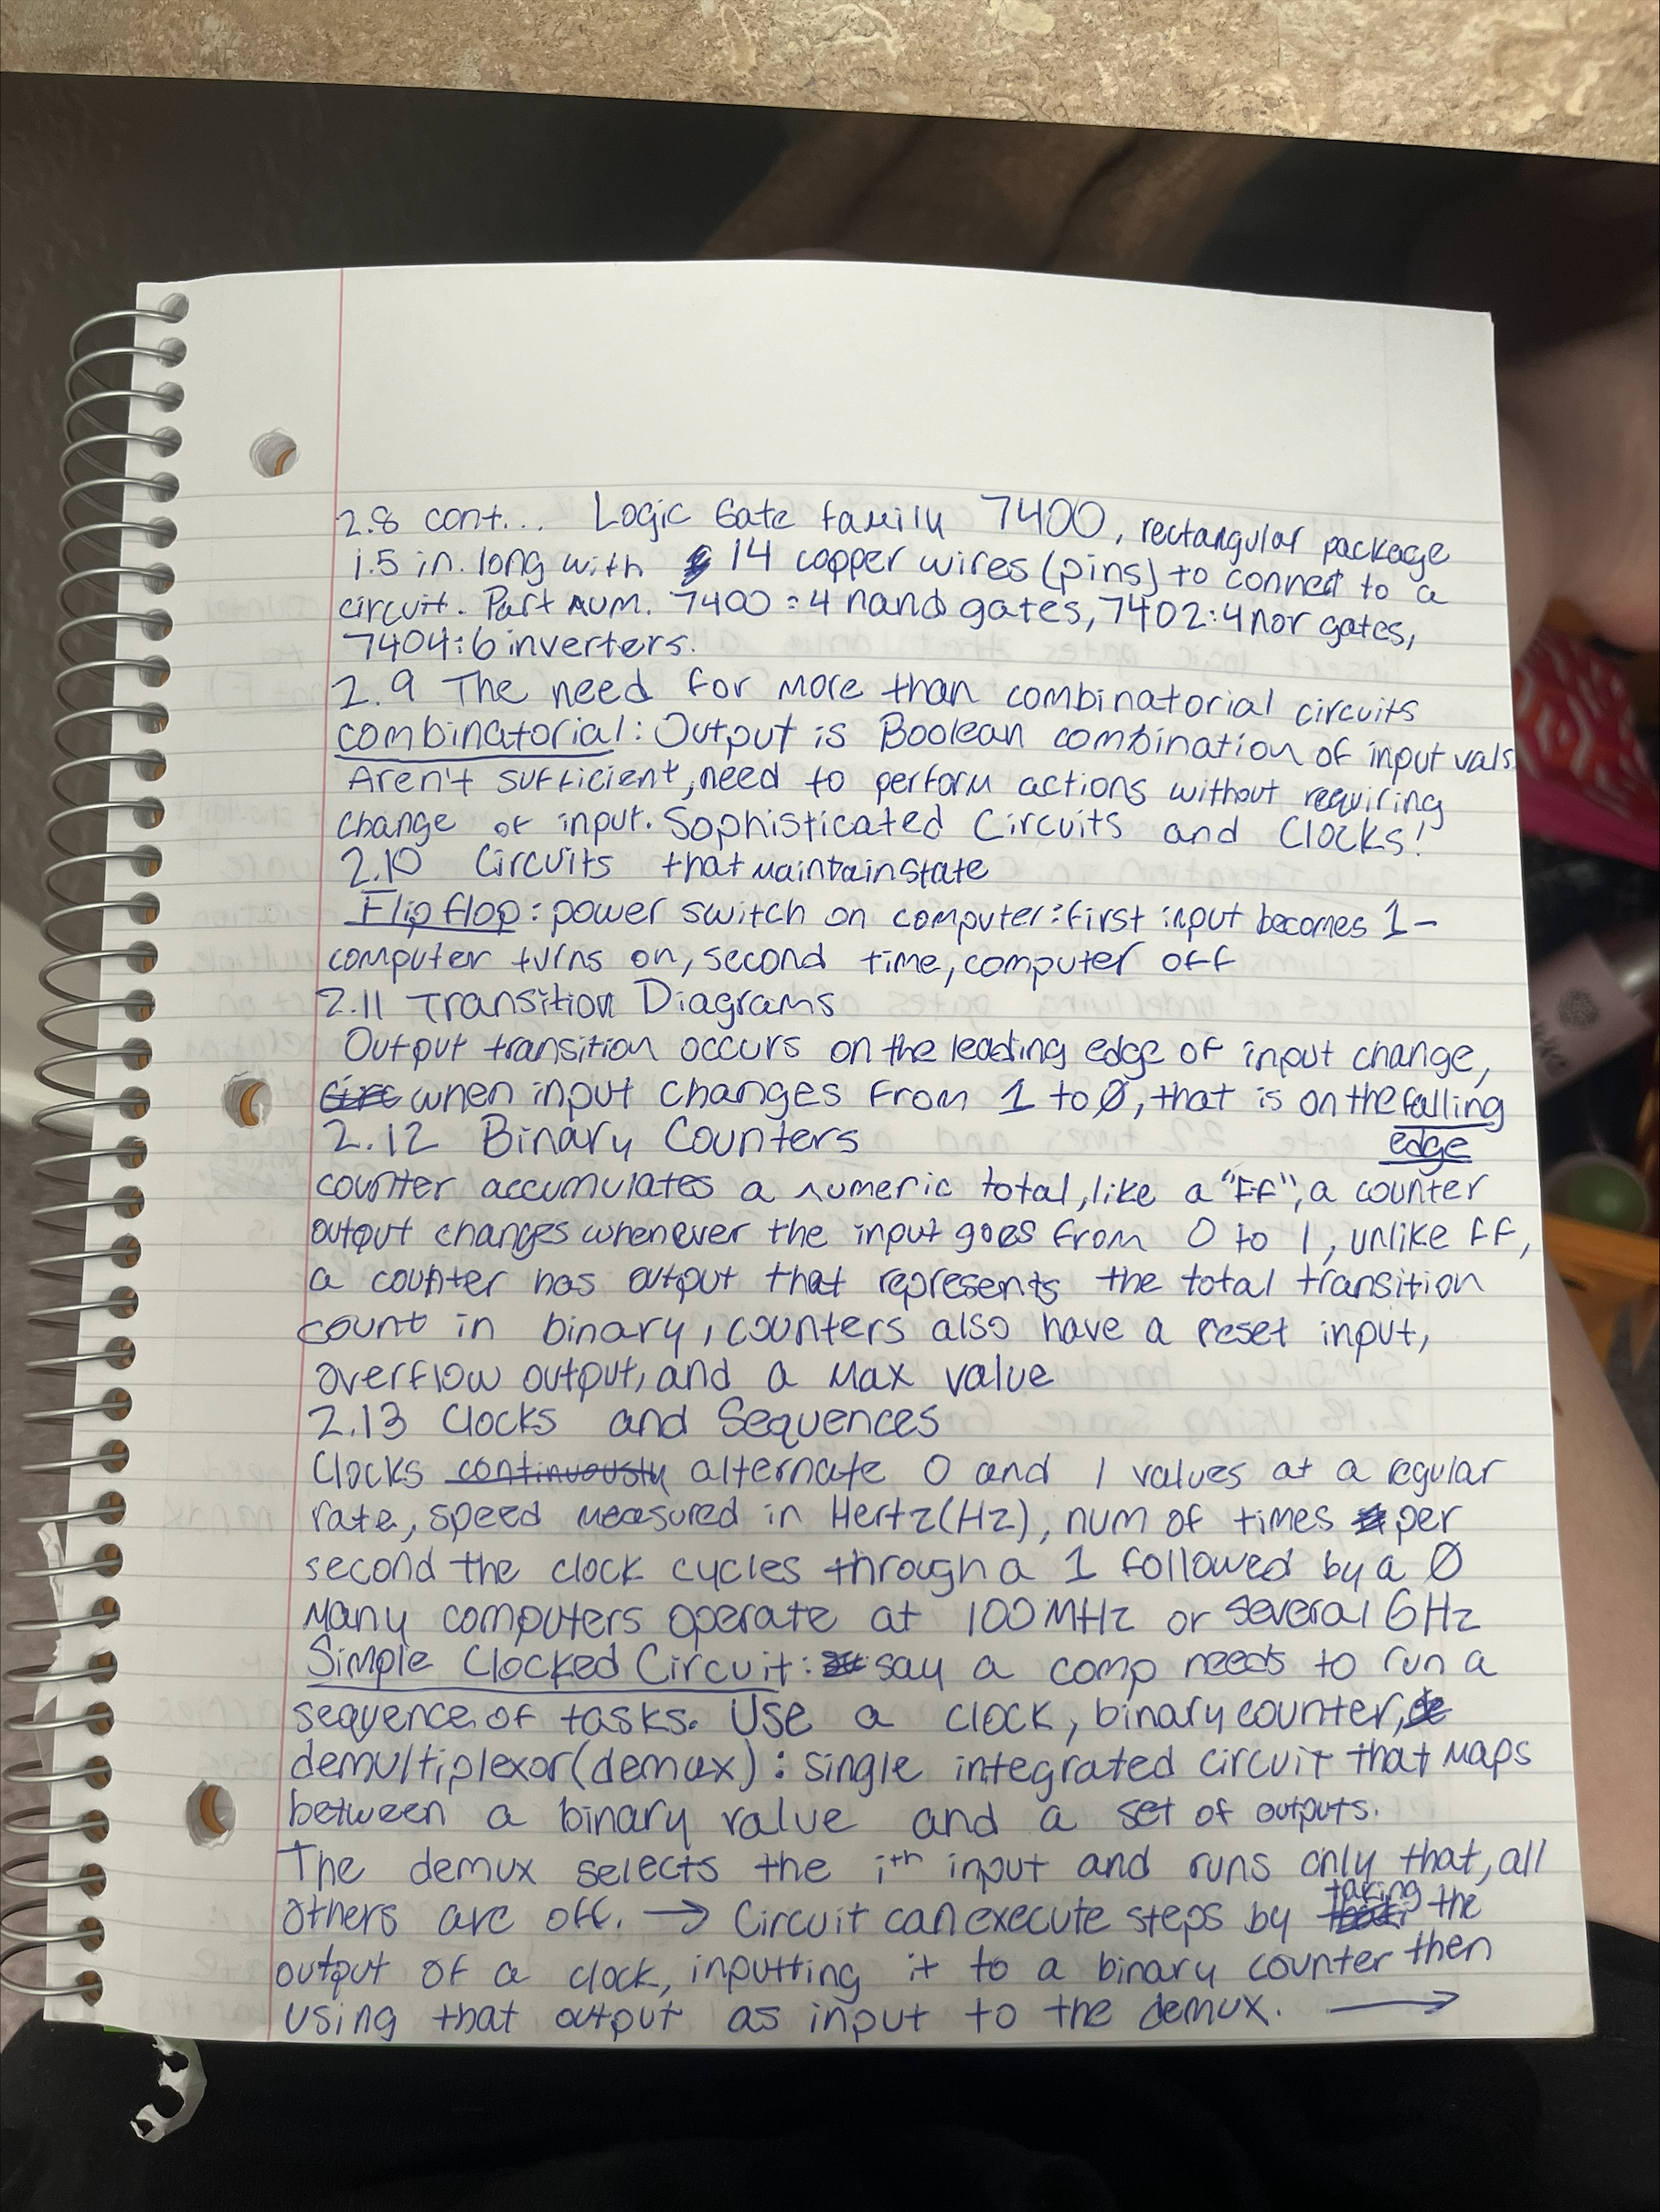 2.8 cont... Logic Gate family 7400, rectangular package
1.5 in. long with 14 copper wires (pins) to connect to a
circuit. Part num. 7400 : 4 nand gates, 7402 : 4 nor gates,
7404 : 6 inverters.
2.9 The need for more than combinatorial circuits
combinatorial: Output is Boolean combination of input vals
Aren't sufficient, need to perform actions without requiring
change of input. Sophisticated Circuits and Clocks!
2.10 Circuits that maintain state
Flip flop: power switch on computer: first input becomes 1-
computer turns on, second time, computer off
2.11 Transition Diagrams
Output transition occurs on the leading edge of input change,
when input changes from 1 to 0, that is on the falling
edge
2.12 Binary Counters
counter accumulates a numeric total, like a "FF", a counter
output changes whenever the input goes from 0 to 1, unlike FF,
a counter has output that represents the total transition
count in binary, counters also have a reset input,
overflow output, and a max value
2.13 Clocks and Sequences
Clocks continuously alternate 0 and 1 values at a regular
rate, speed measured in Hertz(Hz), num of times per
second the clock cycles through a 1 followed by a 0
Many computers operate at 100 MHz or several GHz
Simple Clocked Circuit: say a comp needs to run a
sequence of tasks. Use a clock, binary counter,
demultiplexor(demux): single integrated circuit that maps
between a binary value and a set of outputs.
The demux selects the ith input and runs only that, all
others are off. → Circuit can execute steps by taking the
output of a clock, inputting it to a binary counter then
using that output as input to the demux. →